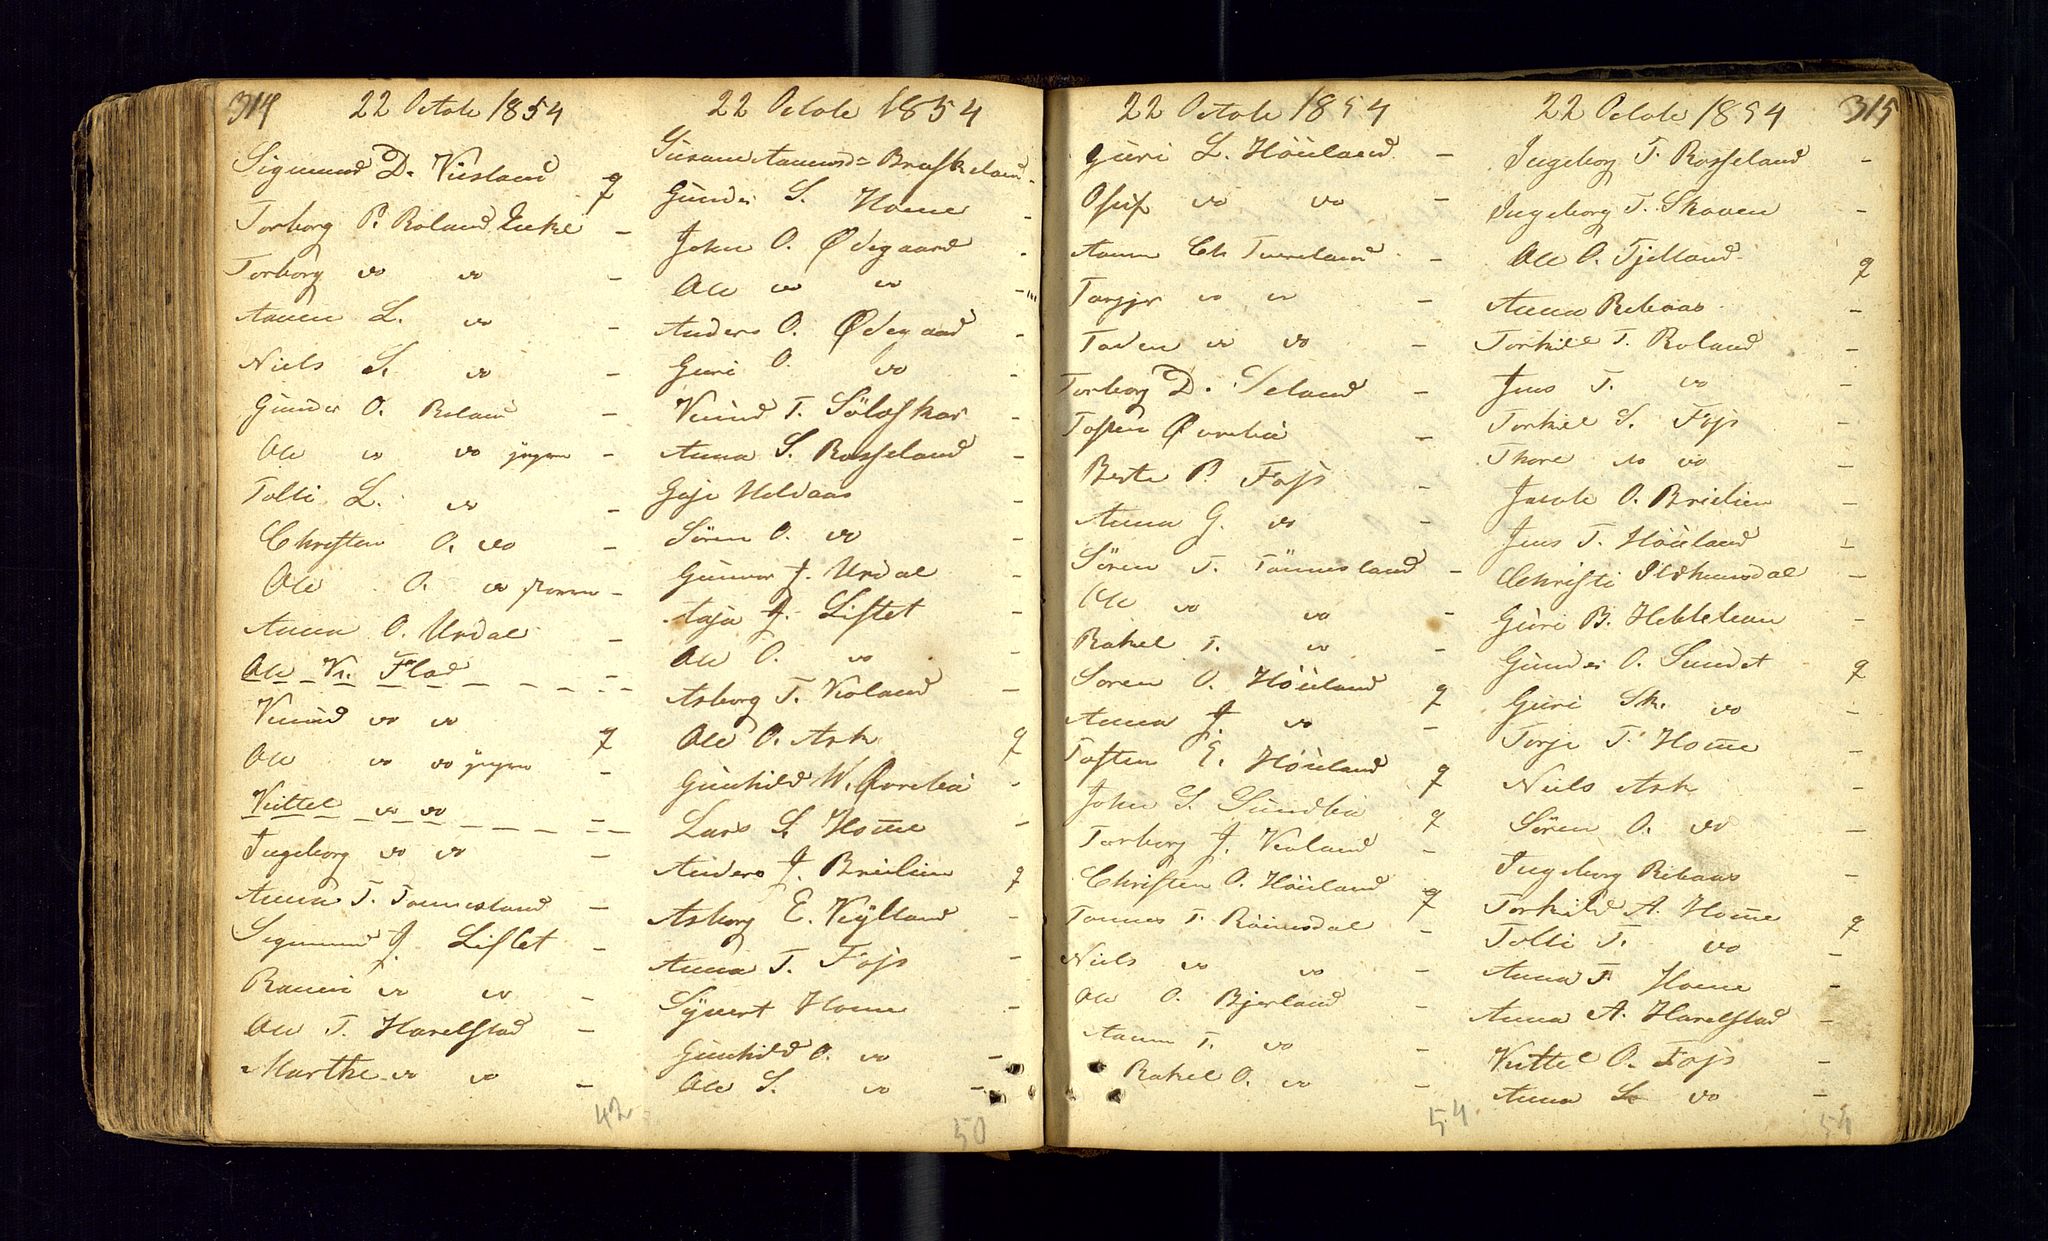 314
22 Octob 1854
Sigmund D. Viisland q
Torborg P. Roland Enke -
Torborg do do -
Aanen L. do -
Niels S. do -
Gunder O. Roland -
Ole do do yngere -
Tolli L. do -
Christen O. do -
Ole O. do -
Anna O. Urdal -
Ole V. Flad
Vemund do do q
Ole do do yngre -
Vittel do do
Ingeborg do do -
Anna T. Tonnesland -
Sigmund J. Liflet -
Rannei do do -
Ole T. Harelstad -
Marthe do do -
42
22 Octob 1854
Susane Aanensd= Braskeland -
Gunder S. Home -
John O. Ødegaard -
Ole do do -
Anders O. Ødegaard -
Guri O. do -
Vemund T. Sölaskar -
Anna S. Rosseland -
Goje Heldaas -
Sören O. do -
Gunvor J. Urdal -
Aasa J. Liflet -
Ole O. do -
Asborg T. Røland -
Ole O. Ask q
Gunhild W. Øvrebö -
Lars S. Home -
Anders J. Breilien q
Asborg E. Kylland -
Anna T. Foss -
Syvert Home -
Gunhild O. do -
Ole S. do -
50
22 Octob 1854
Guri L. Höiland -
Osuf do do -
Aanen Ch Tvereland -
Targjer do do -
Tarjen do do -
Torborg D. Seland -
Tosten Øvrebö -
Berte P. Foss -
Anna G. do -
Sören T. Tönnesland -
Ole do do -
Rakel T. do -
Soren O. Höiland q
Anna J. do -
Tosten E. Höiland q
John S. Sundbø q
Torborg J. Røland -
Christen O. Höiland q
Tonnes T. Röinsdal -
Niels do do -
Ole O. Bjerland -
Aanen T. do -
Rakel O. do -
54
22 Octob 1854
315
Ingeborg T. Rosseland -
Ingeborg T. Skaven -
Ole O. Fjelland q
Anna Rebaas -
Torkild T. Roland -
Jens T. do -
Torkel S. Foss -
Thore do do -
Jacob O. Breilien -
Jens T. Höiland -
Christi Ildhunsdal -
Guri B. Hebleheien -
Gunder O. Sundet q
Guri Sk. do -
Torje T. Home -
Niels Ask -
Sören O. do -
Ingeborg Ribaas -
Torkild A. Home q
Tolli T. do -
Anna T. Home -
Anna A. Harelstad -
Vittel O. Foss -
Anna S. do -
54